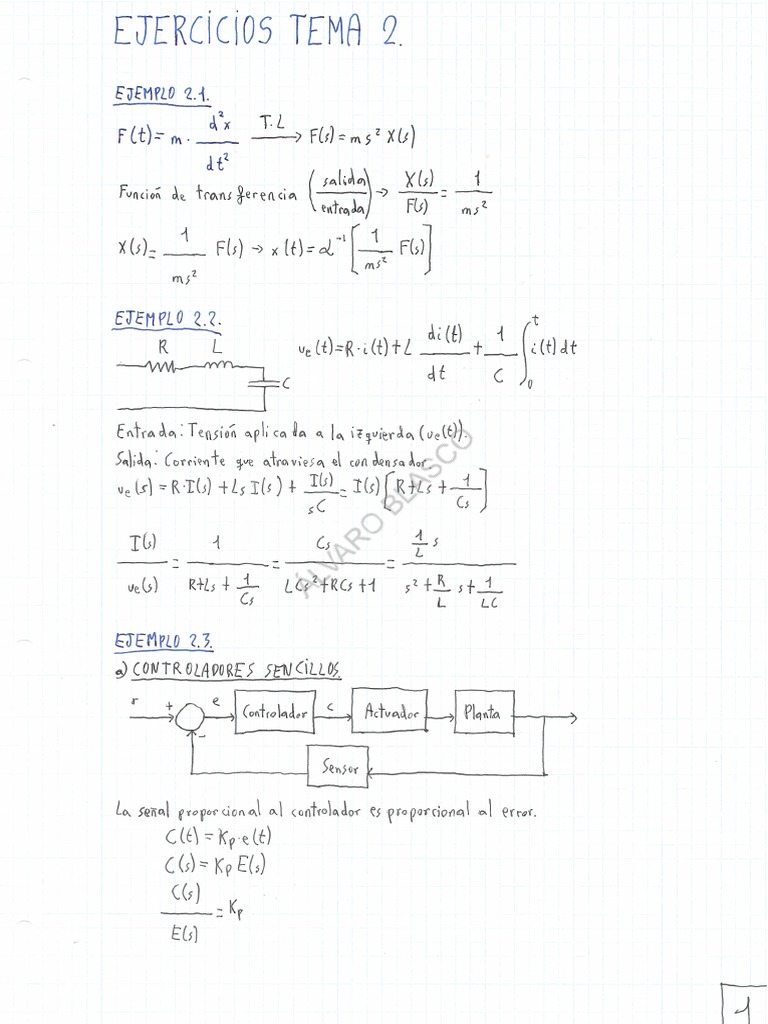 EJERCICIOS TEMA 2.
EJEMPLO 2.1.
F(t)= m · d²x/dt² T.L → F(s)= m s² X(s)
Función de transferencia (salida/entrada) → X(s)/F(s) = 1/ms²
X(s)= 1/ms² F(s) → x(t)= ℒ⁻¹[1/ms² F(s)]
EJEMPLO 2.2.
R L C
ve(t)=R·i(t)+L di(t)/dt + 1/C ∫₀ᵗ i(t)dt
Entrada: Tensión aplicada a la izquierda (ve(t)).
Salida: Corriente que atraviesa el condensador.
ve(s) = R·I(s) + Ls I(s) + I(s)/sC = I(s)[R+Ls + 1/Cs]
I(s)/ve(s) = 1/(R+Ls + 1/Cs) = Cs/(LCs²+RCs+1) = (1/L s)/(s²+R/L s+1/LC)
ÁLVARO BLASCO
EJEMPLO 2.3.
a) CONTROLADORES SENCILLOS.
r + - e Controlador c Actuador Planta
Sensor
La señal proporcional al controlador es proporcional al error.
C(t) = Kp·e(t)
C(s) = Kp E(s)
C(s)/E(s) = Kp
1